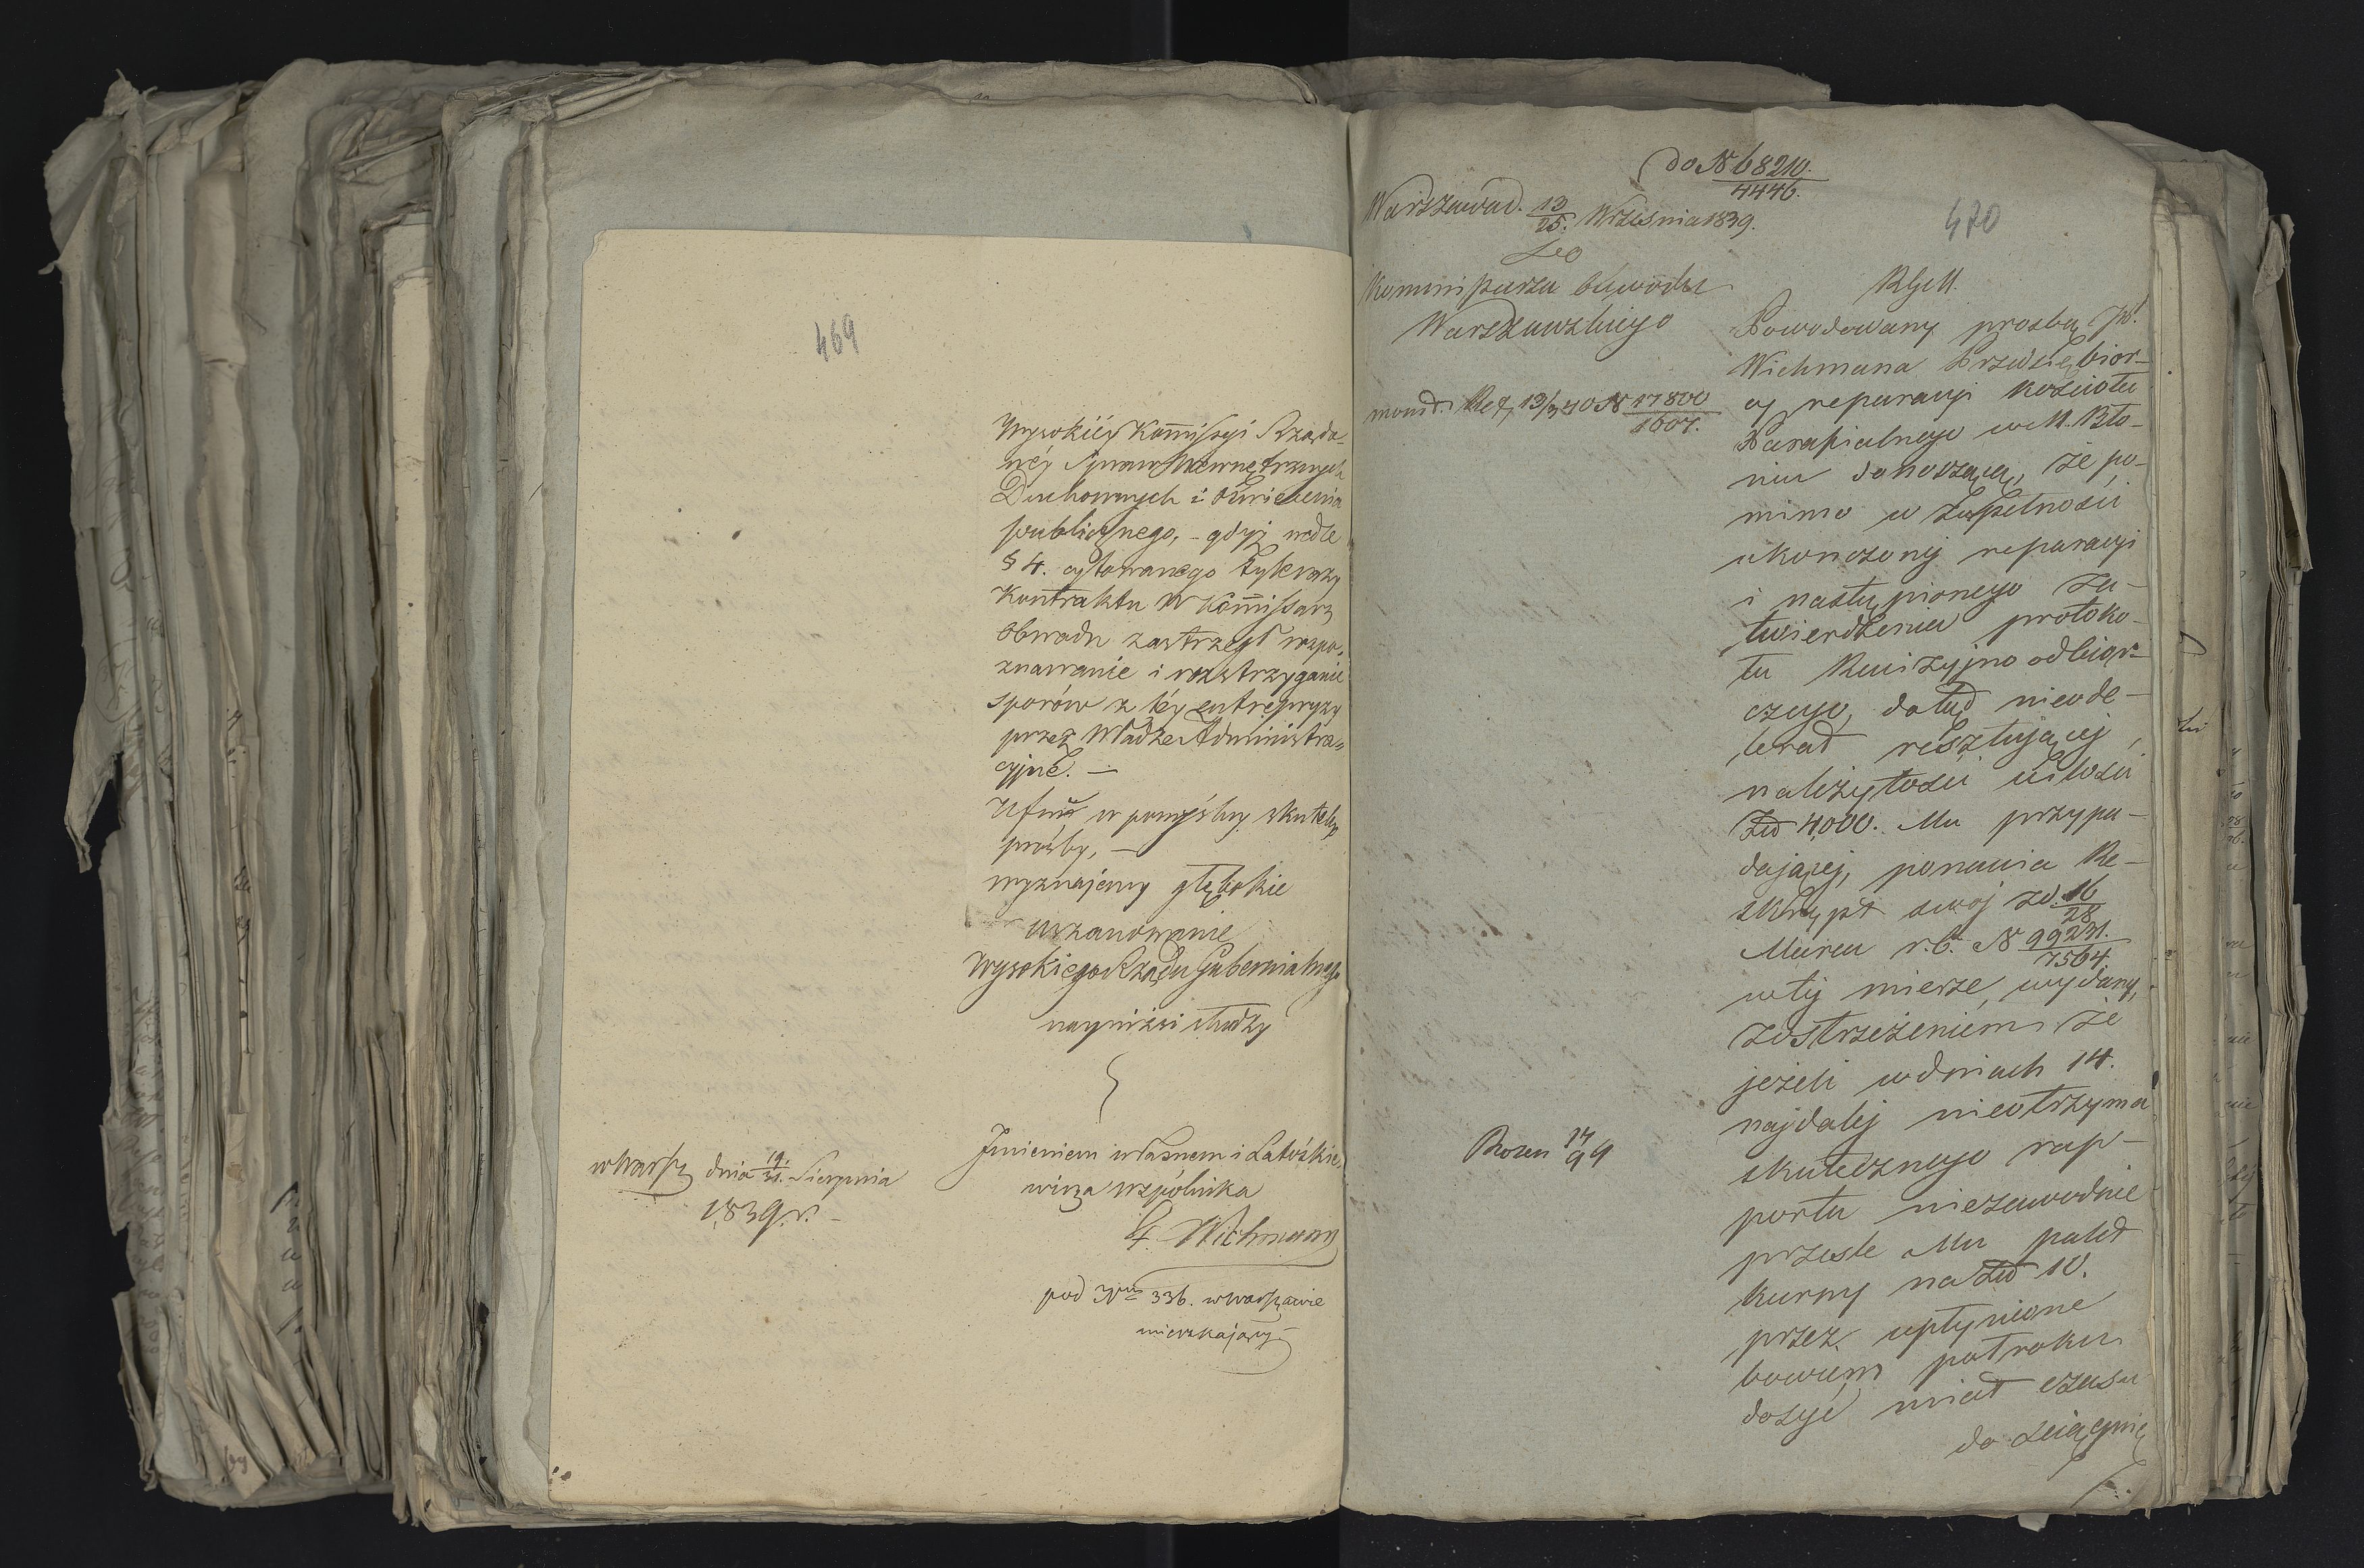 469
Wysokiéy Kommissyi Rządo-
wéy Spraw Wewnętrznych
Duchownych i Oświecenia
publicznego, - gdyż wedle
§ 4. cytowanego tylekroć
Kontraktu W Kommissarz
Obwodu zastrzegł rozpo-
znawanie i rozstrzyganie
sporów z téy entrepryzy
przez Władze Administra-
cyjne. —
Ufni w pomyślny skutek
prośby, —
wyznajemy głębokie
uszanowanie
Wysokiego Rządu Gubernialnego
nayniżsi słudzy
w Warsz dnia 19/31. Sierpnia
1839. r. -
Imieniem własnem i Latoszkie-
wicza wspólnika
Wichmann
pod Nrem 336. w Warszawie
mieszkający
do N 68210./4446.
470
Warszawa d. 13/25. Września 1839.
Do
Kommissarza Obwodu
Warszawskiego
RGM.
Powodowany prosbą JP.
Wichmana Przedsiębior-
cy reparacyi Kościoła
Parafialnego w M. Bło-
niu donoszącą, że po-
mimo w zupełności
ukończonej reparacyi
i nastąpionego za-
twierdzenia protoko-
łu Rewizyjno odbior-
czego, dotąd nieode-
brał resztującej
należytości w ilości
Złp 4,000. Mu przypa-
dającej, ponawia Re-
skrypt swój z d. 16/28
Marca r. b. N 99231./7564.
w tej mierze wydany,
z ostrzeżeniem że
jeżeli w dniach 14.
najdalej nieotrzyma
skutecznego rap-
portu niezawodnie
prześle Mu palet
karny na Złp 10.
przez upłynione
bowiem pół roku
dosyć miał czasu
do ściągnię
mond. Rez 13/3 40 N 17800/1607.
Rozen 14/9 9